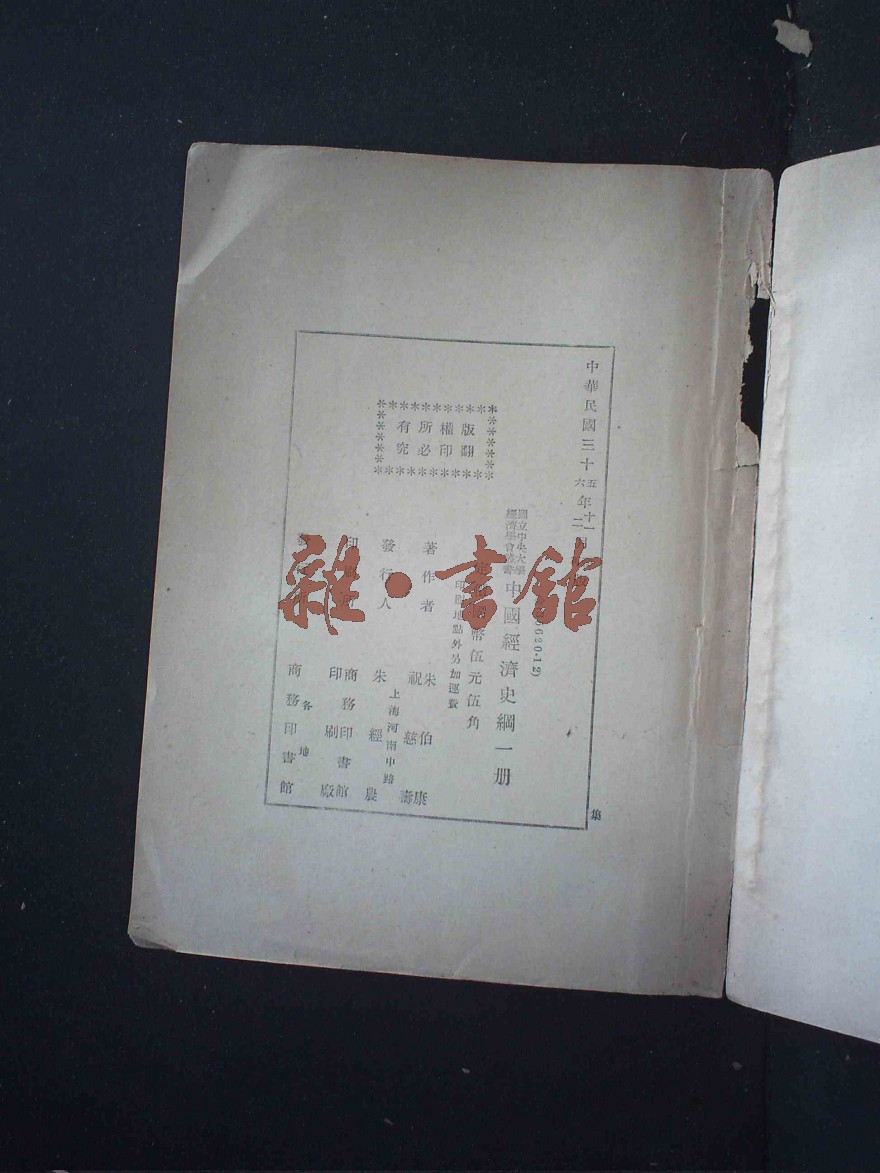 中華民國三十五年十一月
六年二
國立中央大學
經濟學會叢書
中國經濟史綱一册
(620-12)
定價國幣伍元伍角
印刷地點外另加運費
版權所有
翻印必究
著作者
朱伯康
祝慈壽
發行人
朱經農
上海河南中路
印刷所
商務印書館
印刷廠
發行所
各地
商務印書館
集
雜·書館